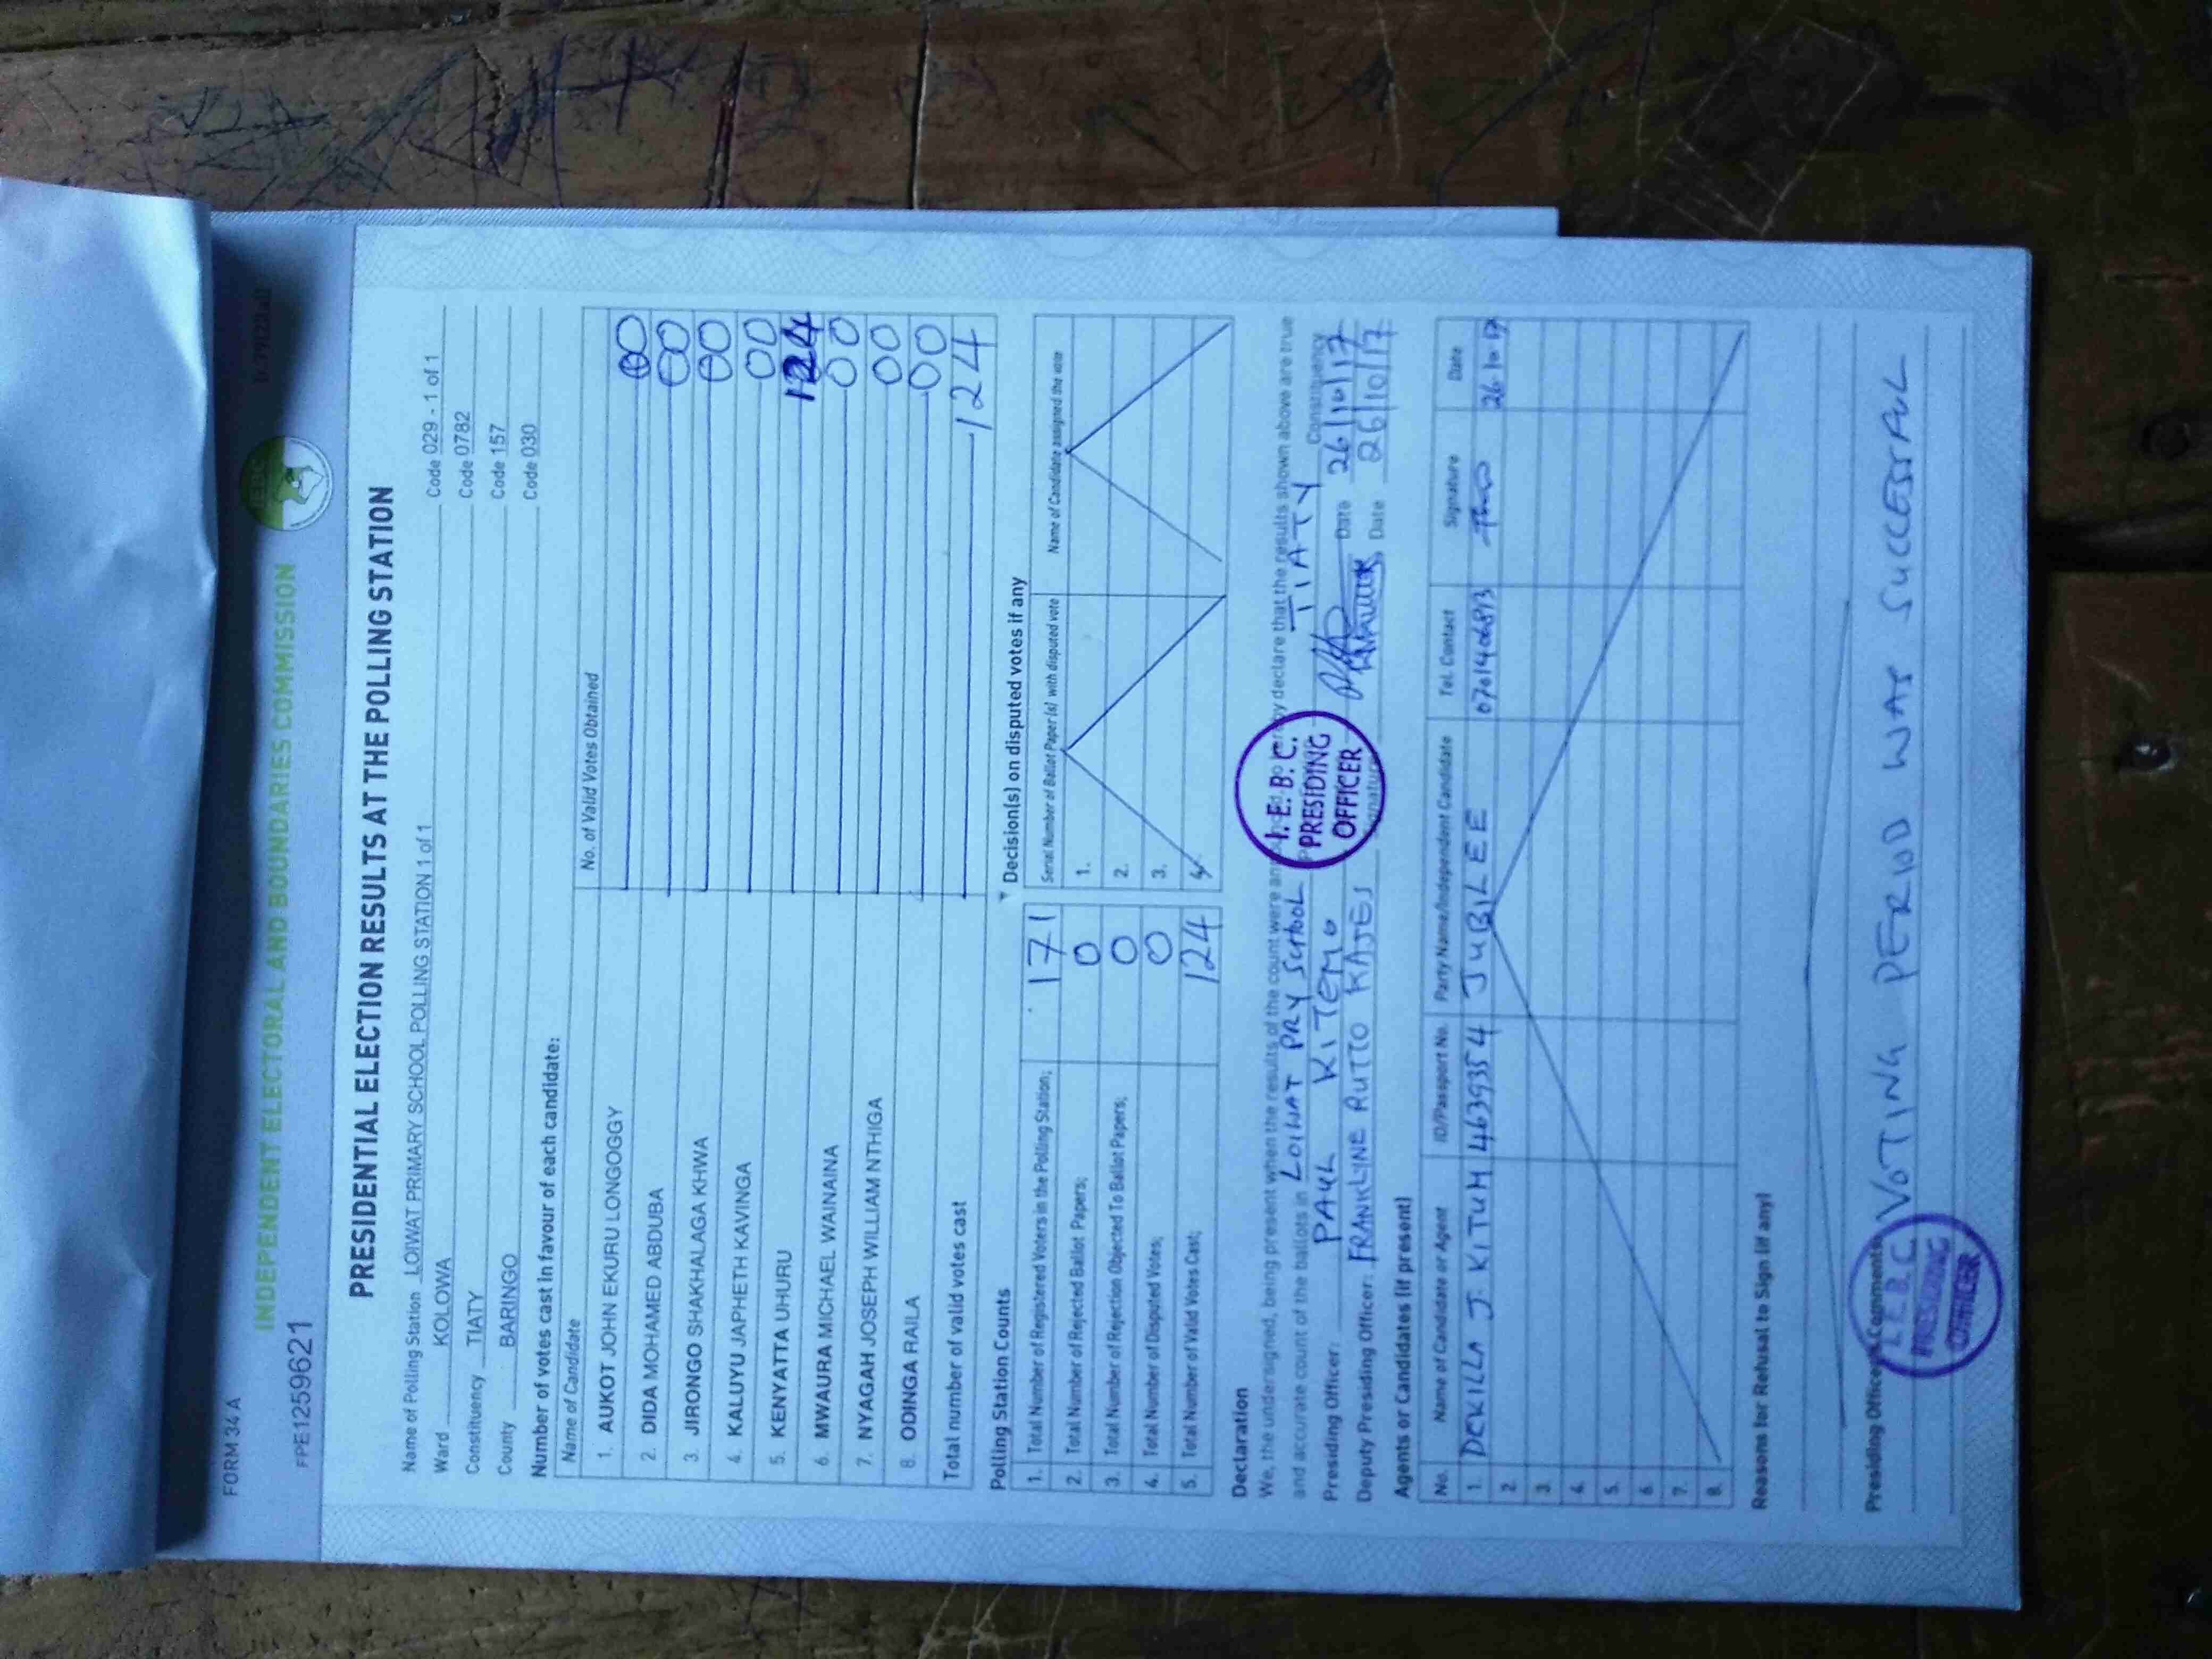 FORM 34 A
INDEPENDENT ELECTORAL AND BOUNDARIES COMMISSION
IEBC
FPE1259621
PRESIDENTIAL ELECTION RESULTS AT THE POLLING STATION
Name of Polling Station LOIWAT PRIMARY SCHOOL POLLING STATION 1 of 1 Code 029 - 1 of 1
Ward KOLOWA Code 0782
Constituency TIATY Code 157
County BARINGO Code 030
Number of votes cast in favour of each candidate:
Name of Candidate No. of Valid Votes Obtained
1. AUKOT JOHN EKURU LONGOGGY 00
2. DIDA MOHAMED ABDUBA 00
3. JIRONGO SHAKHALAGA KHWA 00
4. KALUYU JAPHETH KAVINGA 00
5. KENYATTA UHURU 124
6. MWAURA MICHAEL WAINAINA 00
7. NYAGAH JOSEPH WILLIAM NTHIGA 00
8. ODINGA RAILA 00
Total number of valid votes cast 124
Polling Station Counts
1. Total Number of Registered Voters in the Polling Station; 171
2. Total Number of Rejected Ballot Papers; 0
3. Total Number of Rejection Objected To Ballot Papers; 0
4. Total Number of Disputed Votes; 0
5. Total Number of Valid Votes Cast; 124
Decision(s) on disputed votes if any
Serial Number of Ballot Paper(s) with disputed vote Name of Candidate assigned the vote
1.
2.
3.
4.
Declaration
We, the undersigned, being present when the results of the count were declare that the results shown above are true
and accurate count of the ballots in LOIWAT PRY SCHOOL TIATY Constituency
Presiding Officer: PAUL KITEMO Date 26/10/17
Deputy Presiding Officer: FRANKLYNE RUTTO KAJEJ Date 26/10/17
I.E.B.C. PRESIDING OFFICER
Agents or Candidates (if present)
No. Name of Candidate or Agent ID/Passport No. Party Name/Independent Candidate Tel. Contact Signature Date
1. DEKILLA J. KITUM 4639354 JUBILEE 26 10 17
2.
3.
4.
5.
6.
7.
8.
Reasons for Refusal to Sign (if any)
Presiding Officer's Comments VOTING PERIOD WAS SUCCESSFUL
I.E.B.C. PRESIDING OFFICER